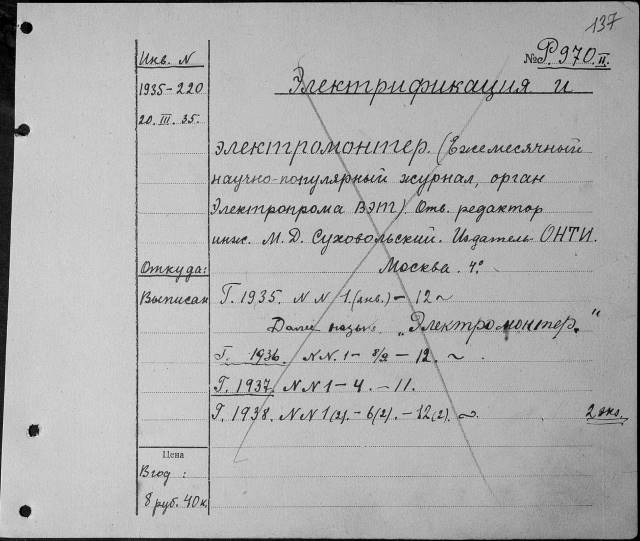 137
Инв. N
№ Р.970.II.
1935-220
Электрификация и
20.III.35.
электромонтер. (Ежемесячный
научно-популярный журнал, орган
Электропрома ВЭТ). Отв. редактор
инж. М. Д. Суховольский. Издатель ОНТИ.
Откуда:
Москва. 4°
Выписан
Г. 1935. N N 1.(янв.) - 12 ~
Далее назыв. „Электромонтер."
Г. 1936. N N. 1 - 8/9 - 12. ~
Г. 1937. N N 1 - 4. - 11.
Г. 1938. N N 1(2). - 6(2). - 12(2). ~ 2 экз.
Цена
В год:
8 руб. 40 к.